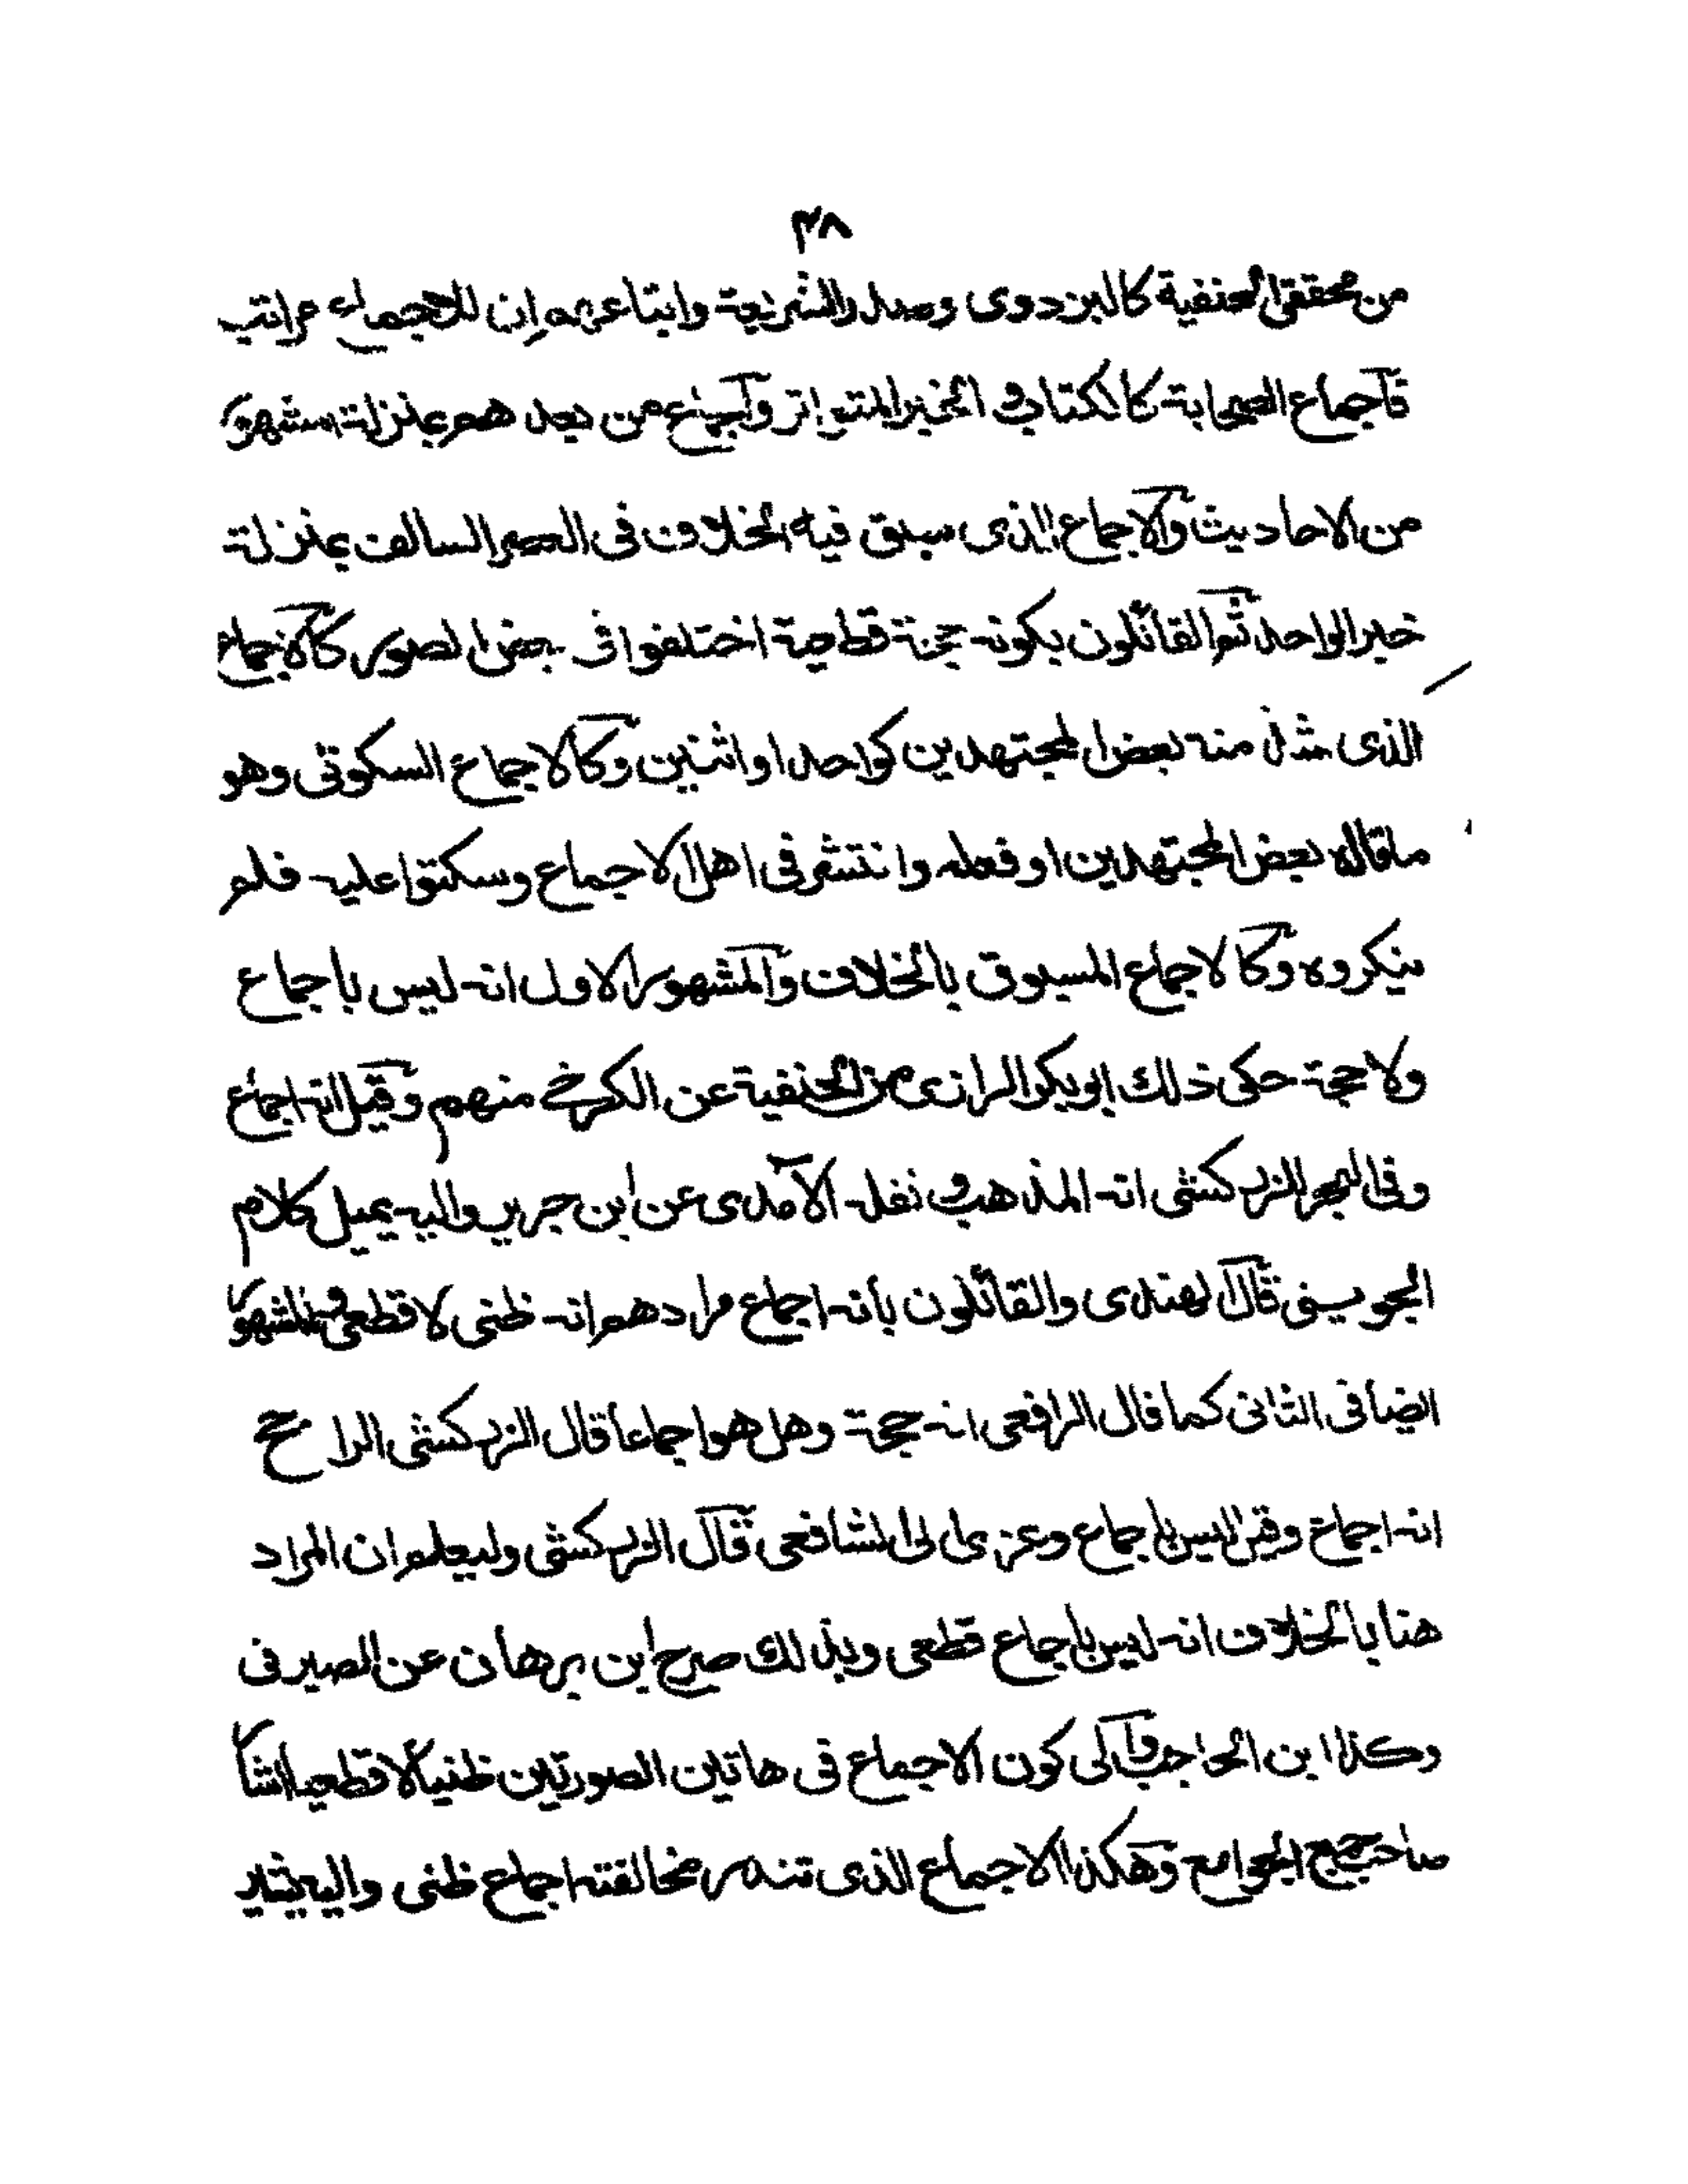 ٣٨
من محققي الحنفية كالبزدوى وصدر الشريعة واتباعهم ان للاجماع مراتب
فاجماع الصحابة كالكتاب والخبر المتواتر واجماع من بعدهم بمنزلة المشهور
من الاحاديث والاجماع الذى سبق فيه الخلاف فى العصر السالف بمنزلة
خبر الواحد ثم القائلون بكونه حجة قطعية اختلفوا فى بعض الصور كالاجماع
الذى شذ منه بعض المجتهدين كواحد او اثنين وكالاجماع السكوتى وهو
ما قاله بعض المجتهدين او فعله وانتشر فى اهل الاجماع وسكتوا عليه فلم
ينكروه وكالاجماع المسبوق بالخلاف والمشهور الاول انه ليس باجماع
ولا حجة حكى ذلك ابوبكر الرازى من الحنفية عن الكرخي منهم وقيل انه اجماع
وفى البحر للزركشى انه المذهب ونقله الآمدى عن ابن جرير واليه يميل كلام
الجوينى قال الهندى والقائلون بأنه اجماع مرادهم انه ظنى لا قطعى والمشهور
ايضا فى الثانى كما قال الرافعى انه حجة وهل هو اجماع قال الزركشى الراجح
انه اجماع وقيل ليس باجماع وعزى الى الشافعى قال الزركشى وليعلم ان المراد
هنا بالخلاف انه ليس باجماع قطعى وبذلك صرح ابن برهان عن الصيرفى
وكذا ابن الحاجب والى كون الاجماع فى هاتين الصورتين ظنيا لا قطعيا اشار
صاحب جمع الجوامع وهكذا الاجماع الذى تندر مخالفته اجماع ظنى واليه يشير